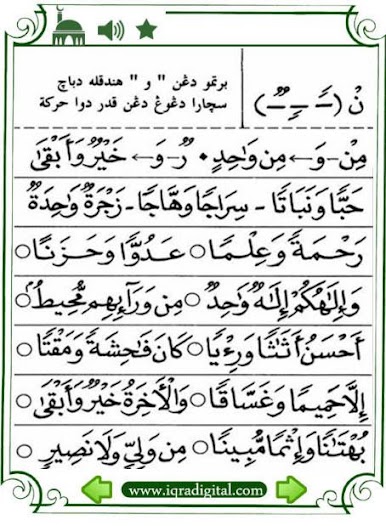 نْ (ــًـ ــٍـ ــٌـ)
برتمو دڠن " و " هندقله دباچ
سچارا دڠوڠ دڠن قدر دوا حركة
مِنْ - وَ ← مِن وَاحِدٍ • رٌ - وَ ← خَيْرٌ وَأَبْقَىٰ
حَبًّا وَنَبَاتًا - سِرَاجًا وَهَّاجًا - زَجْرَةٌ وَاحِدَةٌ
رَحْمَةً وَعِلْمًا ○ عَدُوًّا وَحَزَنًا
وَإِلَٰهُكُمْ إِلَٰهٌ وَاحِدٌ ○ مِن وَرَآئِهِم مُّحِيطٌ
أَحْسَنُ أَثَاثًا وَرِءْيًا ○ كَانَ فَاحِشَةً وَمَقْتًا
إِلَّا حَمِيمًا وَغَسَّاقًا ○ وَالْآخِرَةُ خَيْرٌ وَأَبْقَىٰ
بُهْتَانًا وَإِثْمًا مُّبِينًا ○ مِن وَلِيٍّ وَلَا نَصِيرٍ
www.iqradigital.com